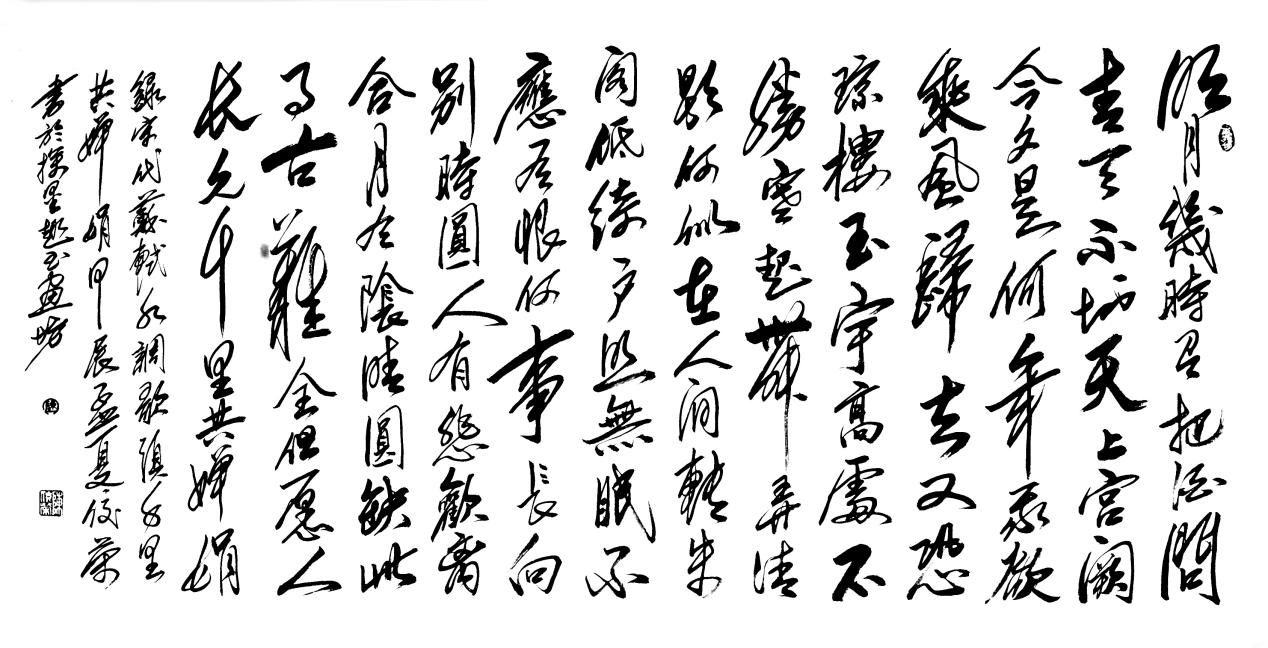 明月幾時有把酒問
青天不知天上宮闕
今夕是何年我欲
乘風歸去又恐
琼樓玉宇高處不
勝寒起舞弄清
影何似在人間轉朱
閣低綺戶照無眠不
應有恨何事長向
別時圓人有悲歡離
合月有陰晴圓缺此
事古難全但願人
長久千里共嬋娟
錄宋代蘇軾水調歌頭千里
共嬋娟甲辰孟夏俊荣
書於墨趣畫坊